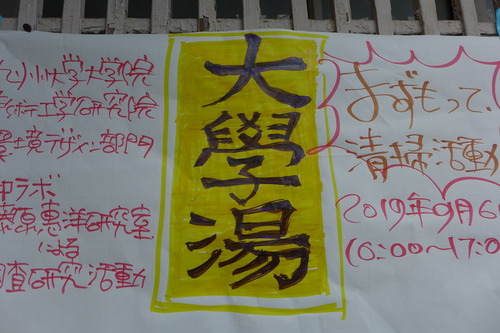 九州大学大学院
芸術工学研究院
環境デザイン部門
藤原惠洋研究室
による
調査研究活動
大學湯
まずもって、
清掃活動
2019年9月6
16:00〜17:0